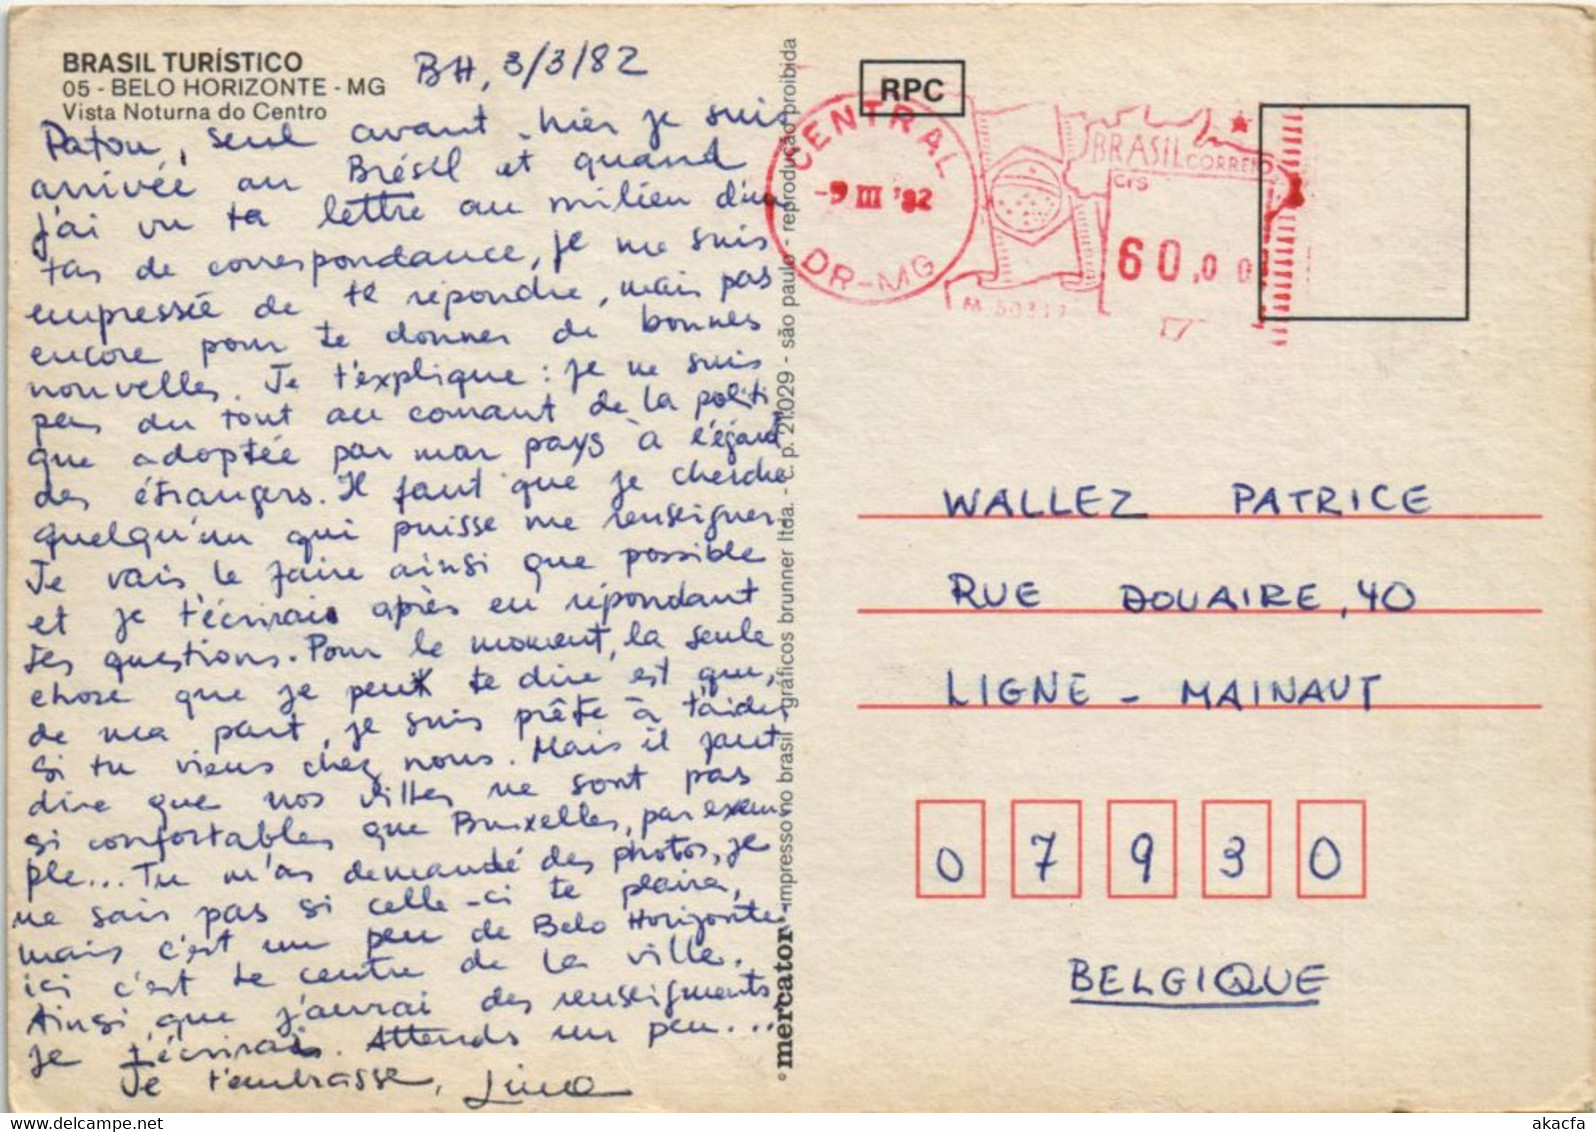 BRASIL TURÍSTICO
05 - BELO HORIZONTE - MG
Vista Noturna do Centro
BH, 3/3/82
Patou, seul avant-hier je suis
arrivée au Brésil et quand
j'ai vu ta lettre au milieu d'un
tas de correspondance, je me suis
empressée de te répondre, mais pas
encore pour te donner de bonnes
nouvelles. Je t'explique : je ne suis
pas du tout au courant de la politi
que adoptée par mon pays à l'égard
des étrangers. Il faut que je cherche
quelqu'un qui puisse me renseigner.
Je vais le faire ainsi que possible
et je t'écrirais après en répondant
tes questions. Pour le moment, la seule
chose que je peux te dire est que,
de ma part, je suis prête à t'aider
si tu viens chez nous. Mais il faut
dire que nos villes ne sont pas
si confortables que Bruxelles, par exem
ple... Tu m'as demandé des photos, je
ne sais pas si celle-ci te plaira,
mais c'est un peu de Belo Horizonte.
ici c'est le centre de la ville.
Ainsi que j'aurai des renseigments
je t'écrirais. Attends un peu...
Je t'embrasse,
mercator - impresso no brasil - gráficos brunner ltda. - c. p. 21.029 - são paulo - reprodução proibida
RPC
CENTRAL
-9 III '82
DR-MG
BRASIL CORREIO
Crs
60,00
WALLEZ PATRICE
RUE DOUAIRE, 40
LIGNE - MAINAUT
0 7 9 3 0
BELGIQUE
delcampe.net
akacfa